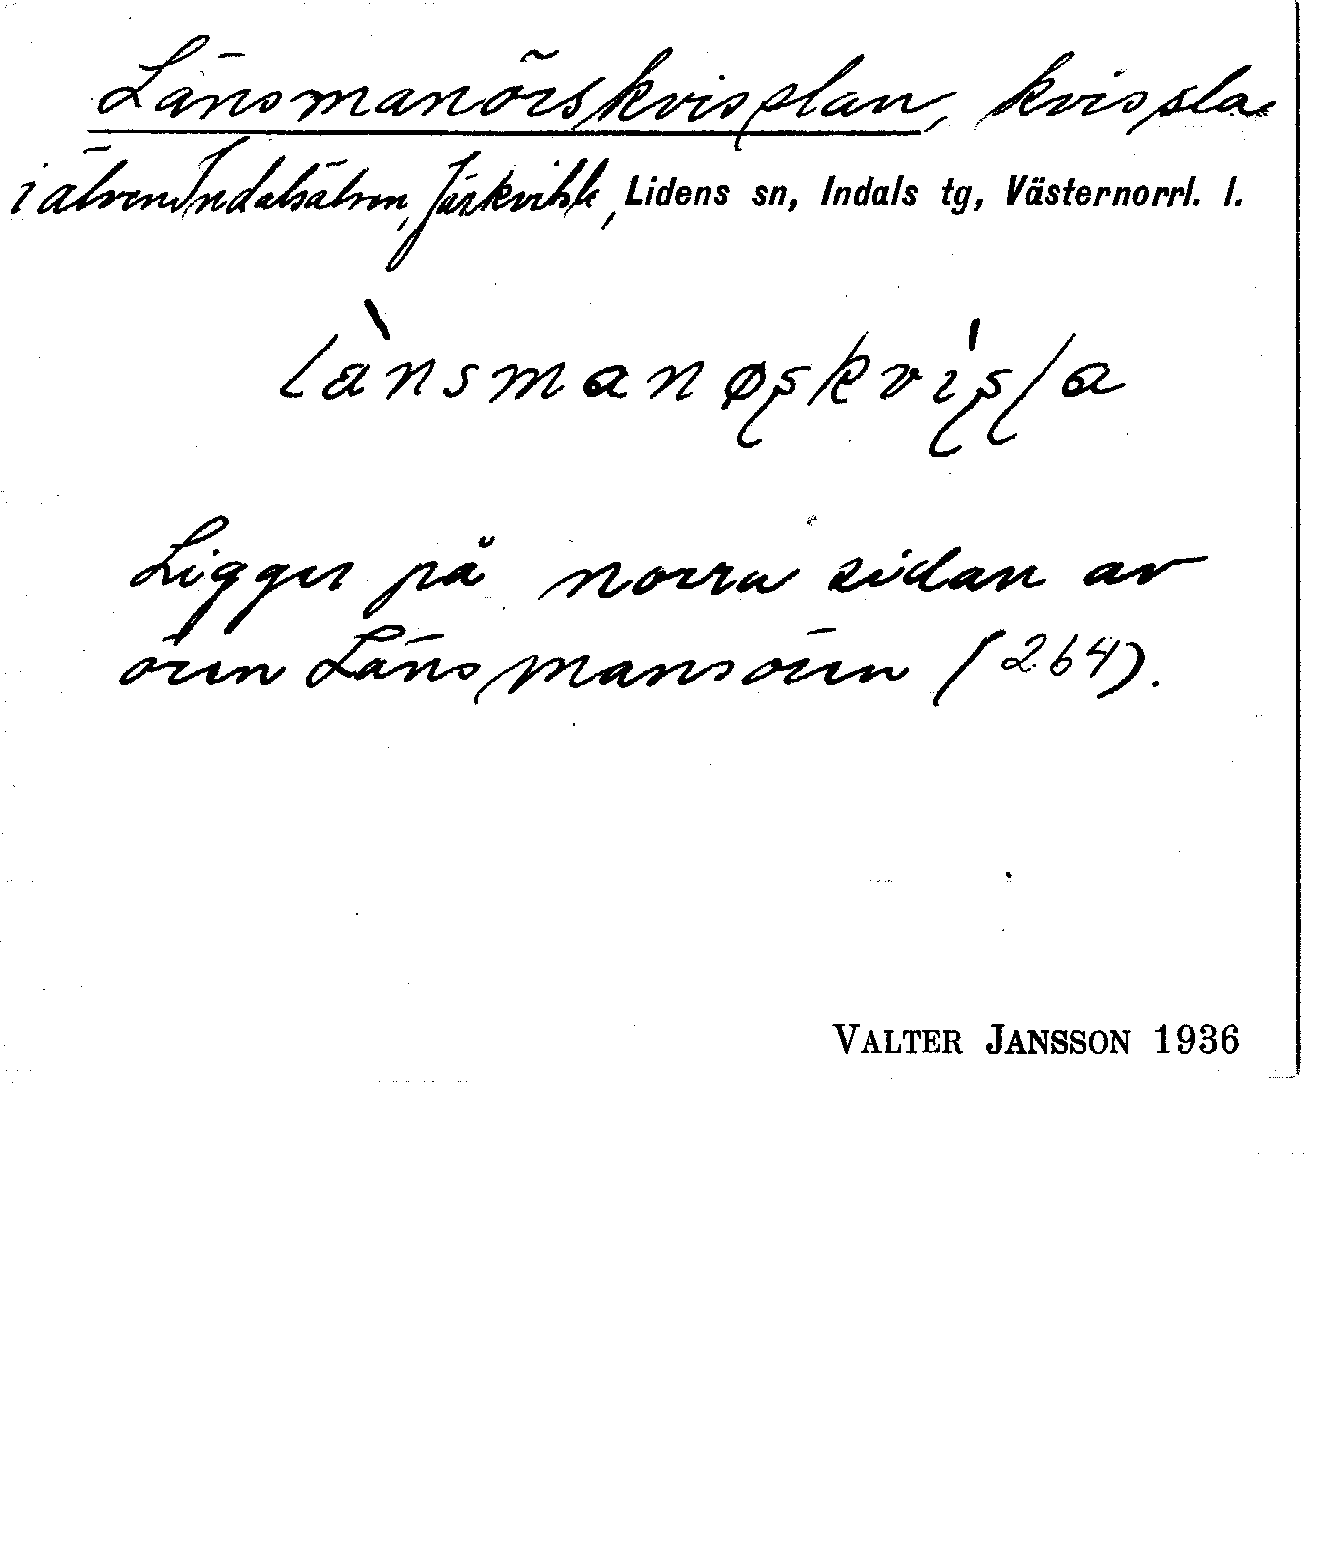 Länsmanörskvisslan, kvissla
i älven Indalsälven, Järkvissle, Lidens sn, Indals tg, Västernorrl. l.
lànsmanøʂkvìʂʂla
Ligger på norra sidan av
ören Länsmansören (264).
VALTER JANSSON 1936